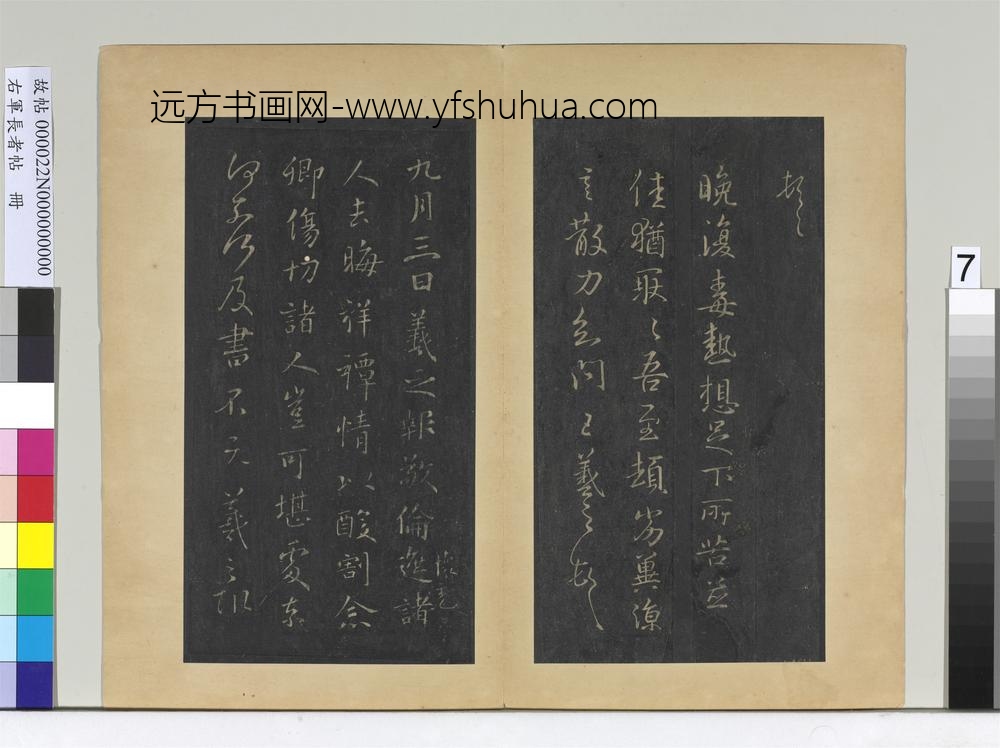 远方书画网-www.yfshuhua.com
故帖 000022N000000000
右軍長者帖 冊
7
頓首
晚復毒熱想足下所苦並
佳猶耿〻吾至頓劣冀涼
言散力知問王羲之頓首
九月三日羲之報敬倫遮諸
人去晦祥禫情以酸割念
卿傷切諸人豈可堪處奈
何奈何及書不 羲之報